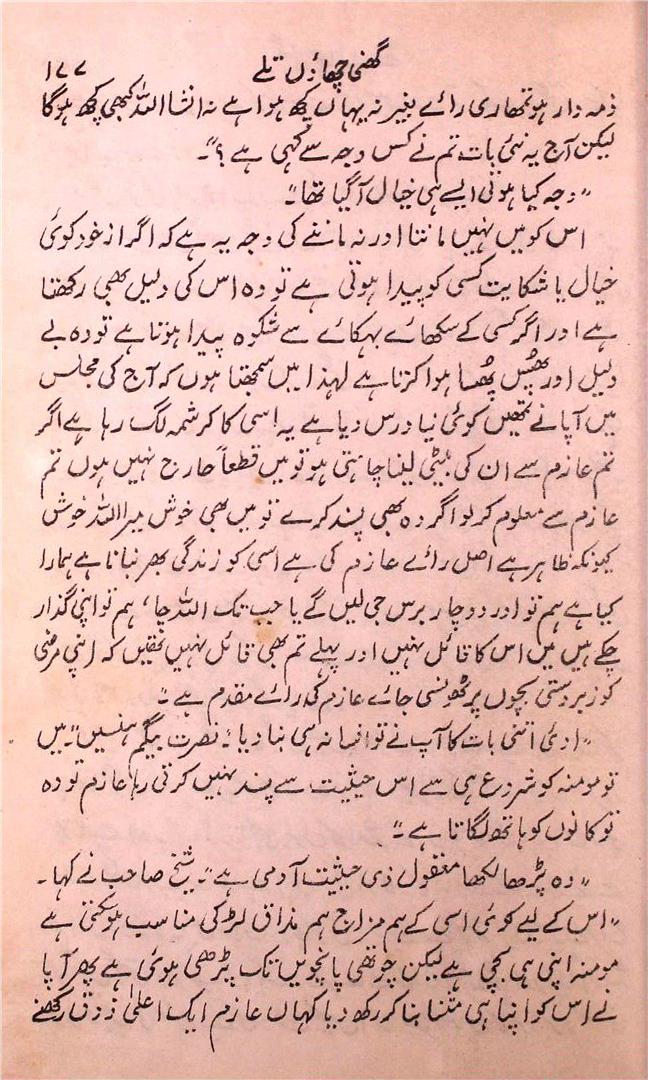 گھنی چھاؤں تلے ۱۷۷
ذمہ دار ہو تمھاری رائے بغیر نہ یہاں کچھ ہوا ہے نہ انشااللہ کبھی کچھ ہوگا
لیکن آج یہ نئی بات تم نے کس وجہ سے کہی ہے ؟"۔
"وجہ کیا ہوتی ایسے ہی خیال آگیا تھا"۔
اس کو میں نہیں مانتا اور نہ ماننے کی وجہ یہ ہے کہ اگر از خود کوئی
خیال یا شکایت کسی کو پیدا ہوتی ہے تو وہ اس کی دلیل بھی رکھتا
ہے اور اگر کسی کے سکھائے بہکائے سے شکوہ پیدا ہوتا ہے تو وہ بے
دلیل اور پھُس پھُسا ہوا کرتا ہے لہذا میں سمجھتا ہوں کہ آج کی مجلس
میں آپا نے تمھیں کوئی نیا درس دیا ہے یہ اسی کا کرشمہ لگ رہا ہے اگر
تم عازم سے ان کی بیٹی لینا چاہتی ہو تو میں قطعاً حارج نہیں ہوں تم
عازم سے معلوم کر لو اگر وہ بھی پسند کرے تو میں بھی خوش میرا اللہ خوش
کیونکہ ظاہر ہے اصل رائے عازم کی ہے اسی کو زندگی بھر نبانا ہے ہمارا
کیا ہے ہم تو اور دو چار برس جی لیں گے یا جب تک اللہ چا، ہم تو اپنی گذار
چکے ہیں میں اس کا قائل نہیں اور پہلے تم بھی قائل نہیں تھیں کہ اپنی مرضی
کو زبردستی بچوں پر ٹھونسی جائے عازم کی رائے مقدم ہے"۔
"اوئی اتنی بات کا آپ نے تو افسانہ ہی بنا دیا" نصرت بیگم ہنسیں" میں
تو مومنہ کو شروع ہی سے اس حیثیت سے پسند نہیں کرتی رہا عازم تو وہ
تو کانوں کو ہاتھ لگاتا ہے"۔
"وہ پڑھا لکھا معقول ذی حیثیت آدمی ہے"۔ شیخ صاحب نے کہا۔
"اس کے لیے کوئی اسی کے ہم مزاج ہم مذاق لڑکی مناسب ہو سکتی ہے
مومنہ اپنی ہی بچی ہے لیکن چوتھی پانچویں تک پڑھی ہوئی ہے پھر آپا
نے اس کو اپنا ہی مثنا بنا کر رکھ دیا کہاں عازم ایک اعلیٰ ذوق رکھنے